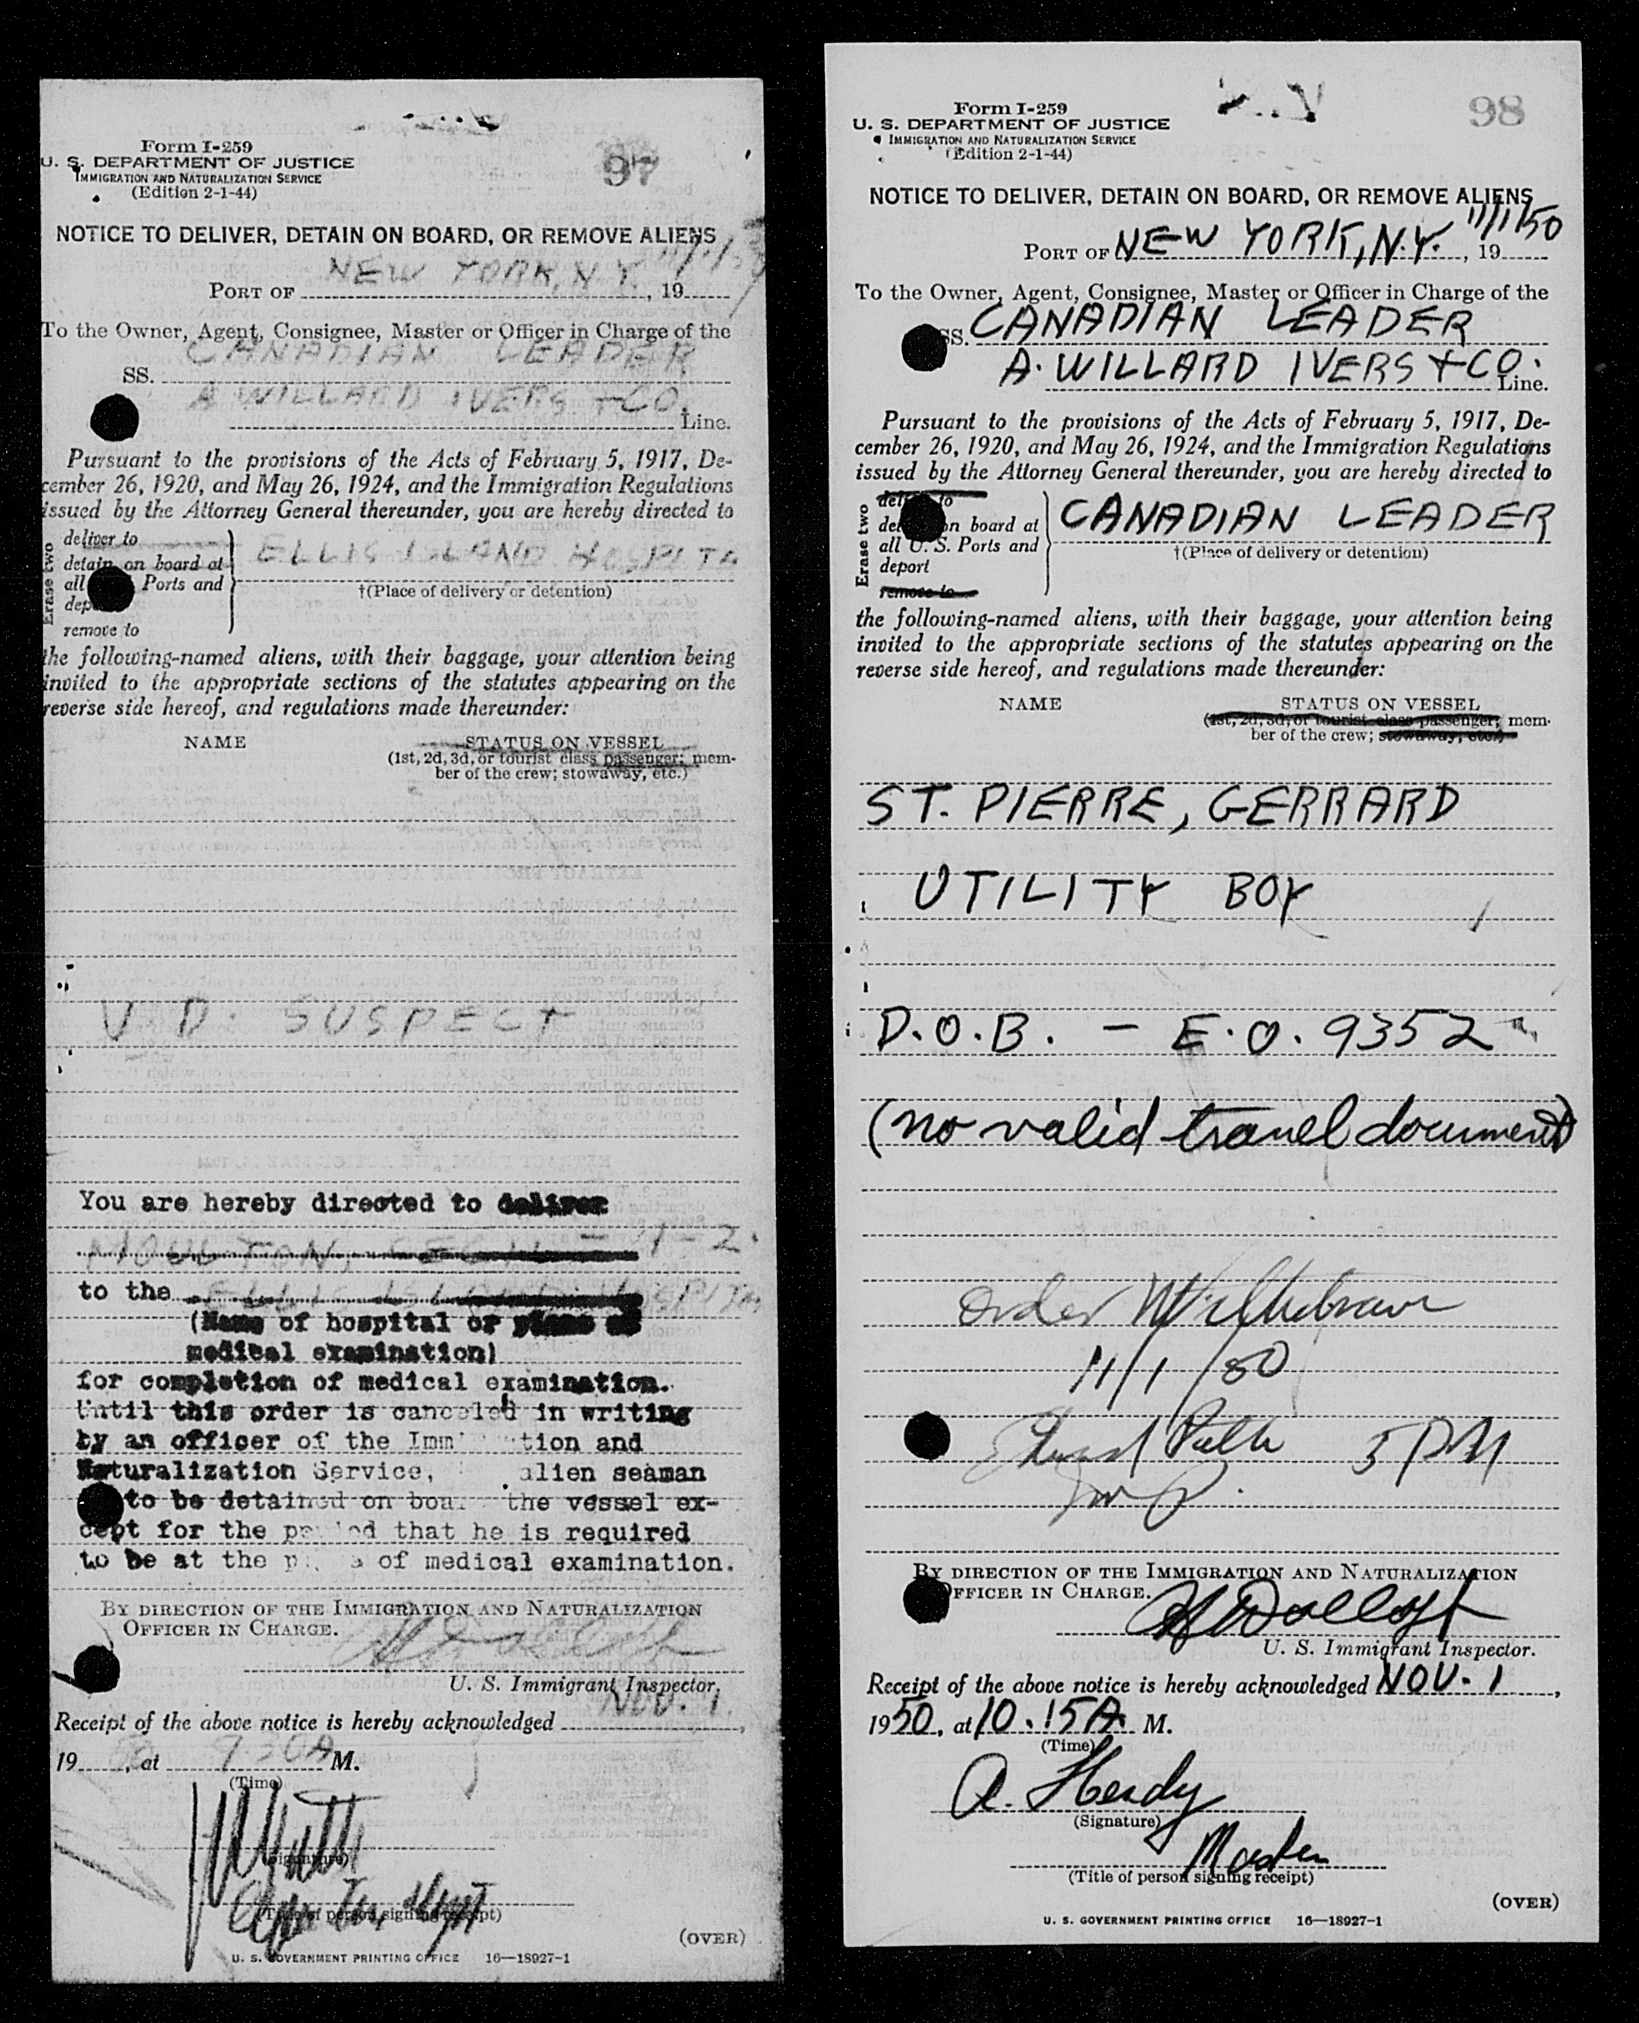 Form I-259
U. S. DEPARTMENT OF JUSTICE
IMMIGRATION AND NATURALIZATION SERVICE
(Edition 2-1-44)
97
NOTICE TO DELIVER, DETAIN ON BOARD, OR REMOVE ALIENS
NEW YORK, N.Y.
PORT OF , 19
To the Owner, Agent, Consignee, Master or Officer in Charge of the
CANADIAN LEADER
SS.
A WILLARD IVERS + CO.
Line.
Pursuant to the provisions of the Acts of February 5, 1917, De-
cember 26, 1920, and May 26, 1924, and the Immigration Regulations
issued by the Attorney General thereunder, you are hereby directed to
Erase two
deliver to
detain on board at
all Ports and
remove to
ELLIS ISLAND HOSPITA
†(Place of delivery or detention)
the following-named aliens, with their baggage, your attention being
invited to the appropriate sections of the statutes appearing on the
reverse side hereof, and regulations made thereunder:
NAME STATUS ON VESSEL
(1st, 2d, 3d, or tourist class passenger; mem-
ber of the crew; stowaway, etc.)
V. D. SUSPECT
You are hereby directed to deliver
MOULTON, CECIL
to the ELLIS ISLAND HOSPITA
(Name of hospital or place of
medical examination)
for completion of medical examination.
Until this order is canceled in writing
by an officer of the Imm tion and
Naturalization Service, alien seaman
to be detained on boa the vessel ex-
cept for the period that he is required
to be at the p of medical examination.
BY DIRECTION OF THE IMMIGRATION AND NATURALIZATION
OFFICER IN CHARGE.
U. S. Immigrant Inspector.
NOV. 1
Receipt of the above notice is hereby acknowledged ,
19 50, at 9:30 A M.
(Time)
(Signature)
(Title of person signing receipt)
(OVER)
U. S. GOVERNMENT PRINTING OFFICE 16—18927-1
Form I-259
U. S. DEPARTMENT OF JUSTICE
IMMIGRATION AND NATURALIZATION SERVICE
(Edition 2-1-44)
98
NOTICE TO DELIVER, DETAIN ON BOARD, OR REMOVE ALIENS
PORT OF NEW YORK, N.Y. 11/1/50, 19
To the Owner, Agent, Consignee, Master or Officer in Charge of the
SS. CANADIAN LEADER
A. WILLARD IVERS + CO. Line.
Pursuant to the provisions of the Acts of February 5, 1917, De-
cember 26, 1920, and May 26, 1924, and the Immigration Regulations
issued by the Attorney General thereunder, you are hereby directed to
Erase two
deliver to
detain on board at
all U. S. Ports and
deport
remove to
CANADIAN LEADER
†(Place of delivery or detention)
the following-named aliens, with their baggage, your attention being
invited to the appropriate sections of the statutes appearing on the
reverse side hereof, and regulations made thereunder:
NAME STATUS ON VESSEL
(1st, 2d, 3d, or tourist class passenger; mem-
ber of the crew; stowaway, etc.)
ST. PIERRE, GERRARD
UTILITY BOY
D.O.B. - E.O. 9352
(no valid travel document)
Order Withdrawn
11/1/50
5 PM
BY DIRECTION OF THE IMMIGRATION AND NATURALIZATION
OFFICER IN CHARGE.
U. S. Immigrant Inspector.
Receipt of the above notice is hereby acknowledged NOV. 1,
1950, at 10.15 A. M.
(Time)
A. Hendy
(Signature)
Master
(Title of person signing receipt)
(OVER)
U. S. GOVERNMENT PRINTING OFFICE 16—18927-1